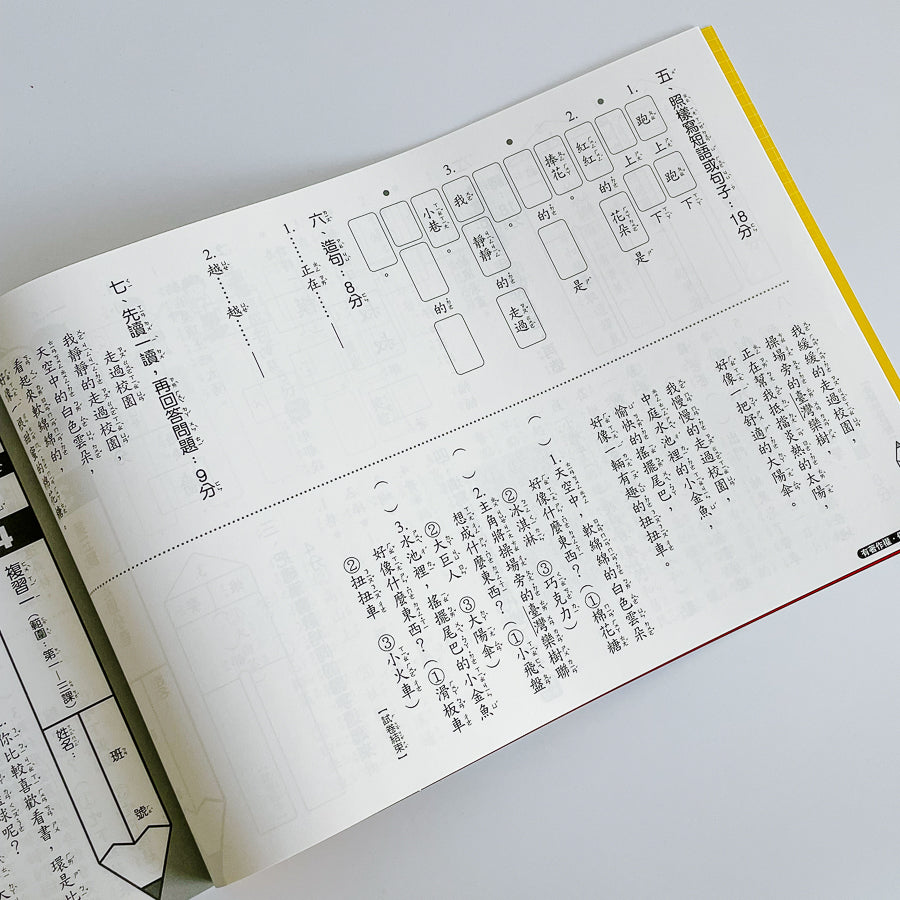 五、照樣寫短語或句子：18分
1. 跑上跑下
上下
2. 紅紅的花朵是
捧花。
的是
。
3. 我靜靜的走過
小巷。
的
。
六、造句：8分
1. 正在……
2. 越……越……
七、先讀一讀，再回答問題：9分
走過校園
我靜靜的走過校園，
天空中的白色雲朵，
看起來軟綿綿的，
我緩緩的走過校園，
操場旁的臺灣欒樹，
正在幫我抵擋炎熱的太陽，
好像一把舒適的大陽傘。
我慢慢的走過校園，
中庭水池裡的小金魚，
愉快的搖擺尾巴，
好像一輛有趣的扭扭車。
（　）1. 天空中，軟綿綿的白色雲朵
好像什麼東西？（①棉花糖
②冰淇淋　③巧克力）
（　）2. 主角將操場旁的臺灣欒樹聯
想成什麼東西？（①小飛盤
②大巨人　③大陽傘）
（　）3. 水池裡，搖擺尾巴的小金魚
好像什麼東西？（①滑板車
②扭扭車　③小火車）
【試卷結束】
有著作權・
4
複習一（範圍：第一～三課）
班　號
姓名：
你比較喜歡看書，環是比
球呢？